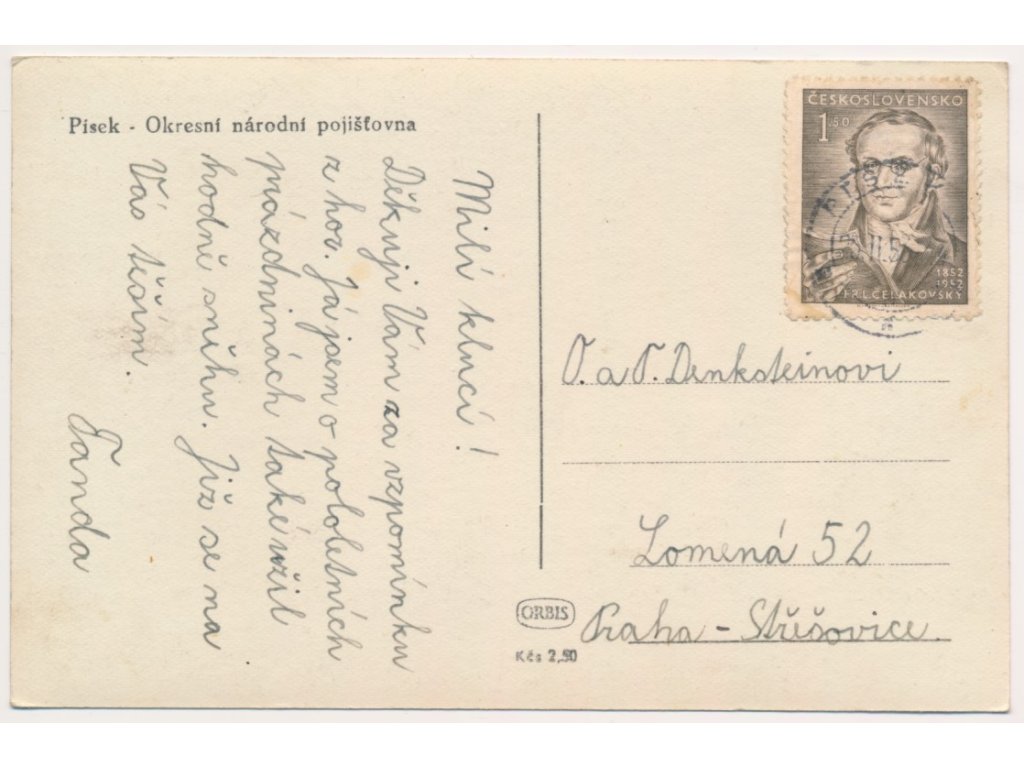 Písek - Okresní národní pojišťovna
Milí kluci!
Děkuji Vám za vzpomínku
z hor. Já jsem o pololetních
prázdninách také užil
hodně sněhu. Již se na
Vás těším.
Fanda
ČESKOSLOVENSKO
1.50
1852
1952
FR.L.ČELAKOVSKÝ
O. a P. Denksteinovi
Lomená 52
Praha - Střešovice.
ORBIS
Kčs 2,50